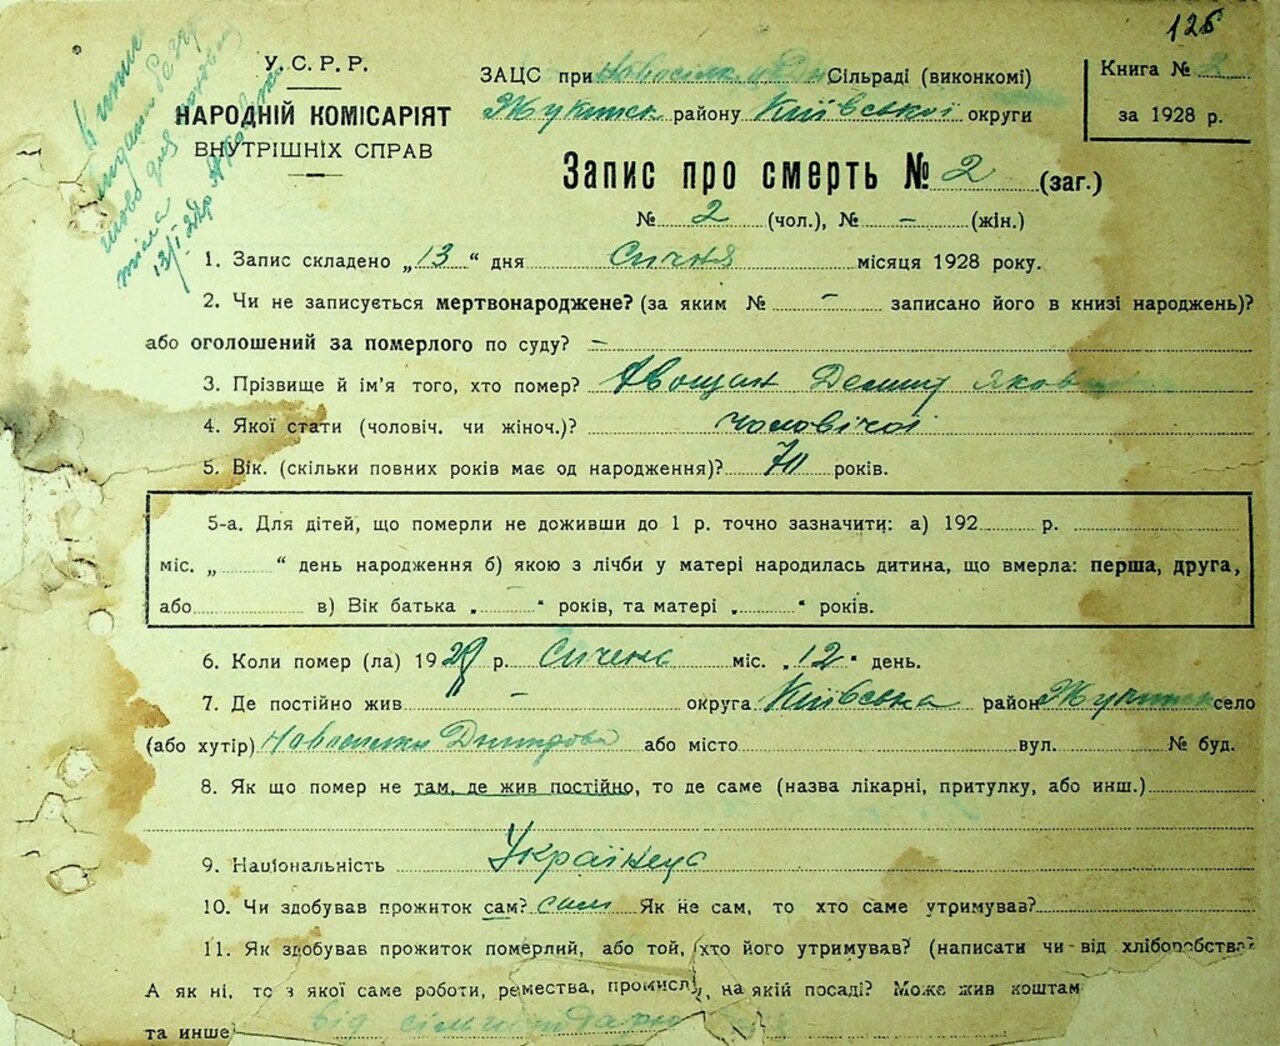 126
У.С.Р.Р.
НАРОДНІЙ КОМІСАРІЯТ
ВНУТРІШНІХ СПРАВ
ЗАЦС при Сільраді (виконкомі)
Жукинськ району Київської округи
Книга № 2
за 1928 р.
13/I 28р
Запис про смерть № 2 (заг.)
№ 2 (чол.), № – (жін.)
1. Запис складено „13“ дня Січня місяця 1928 року.
2. Чи не записується мертвонароджене? (за яким № – записано його в книзі народжень)?
або оголошений за померлого по суду? –
3. Прізвище й ім'я того, хто помер? Демид Яков
4. Якої стати (чоловіч. чи жіноч.)? чоловічої
5. Вік. (скільки повних років має од народження)? 70 років.
5-а. Для дітей, що померли не доживши до 1 р. точно зазначити: а) 192 р.
міс. „ “ день народження б) якою з лічби у матері народилась дитина, що вмерла: перша, друга,
або в) Вік батька „ “ років, та матері „ “ років.
6. Коли помер (ла) 1928 р. Січень міс. „12“ день.
7. Де постійно жив – округа Київська район Жукинськ село
(або хутір) або місто вул. № буд.
8. Як що помер не там, де жив постійно, то де саме (назва лікарні, притулку, або инш.)
9. Національність Українець
10. Чи здобував прожиток сам? сам Як не сам, то хто саме утримував?
11. Як здобував прожиток померлий, або той, хто його утримував? (написати чи від хліборобства?
А як ні, то з якої саме роботи, ремества, промислу, на якій посаді? Може жив коштам
та инше від